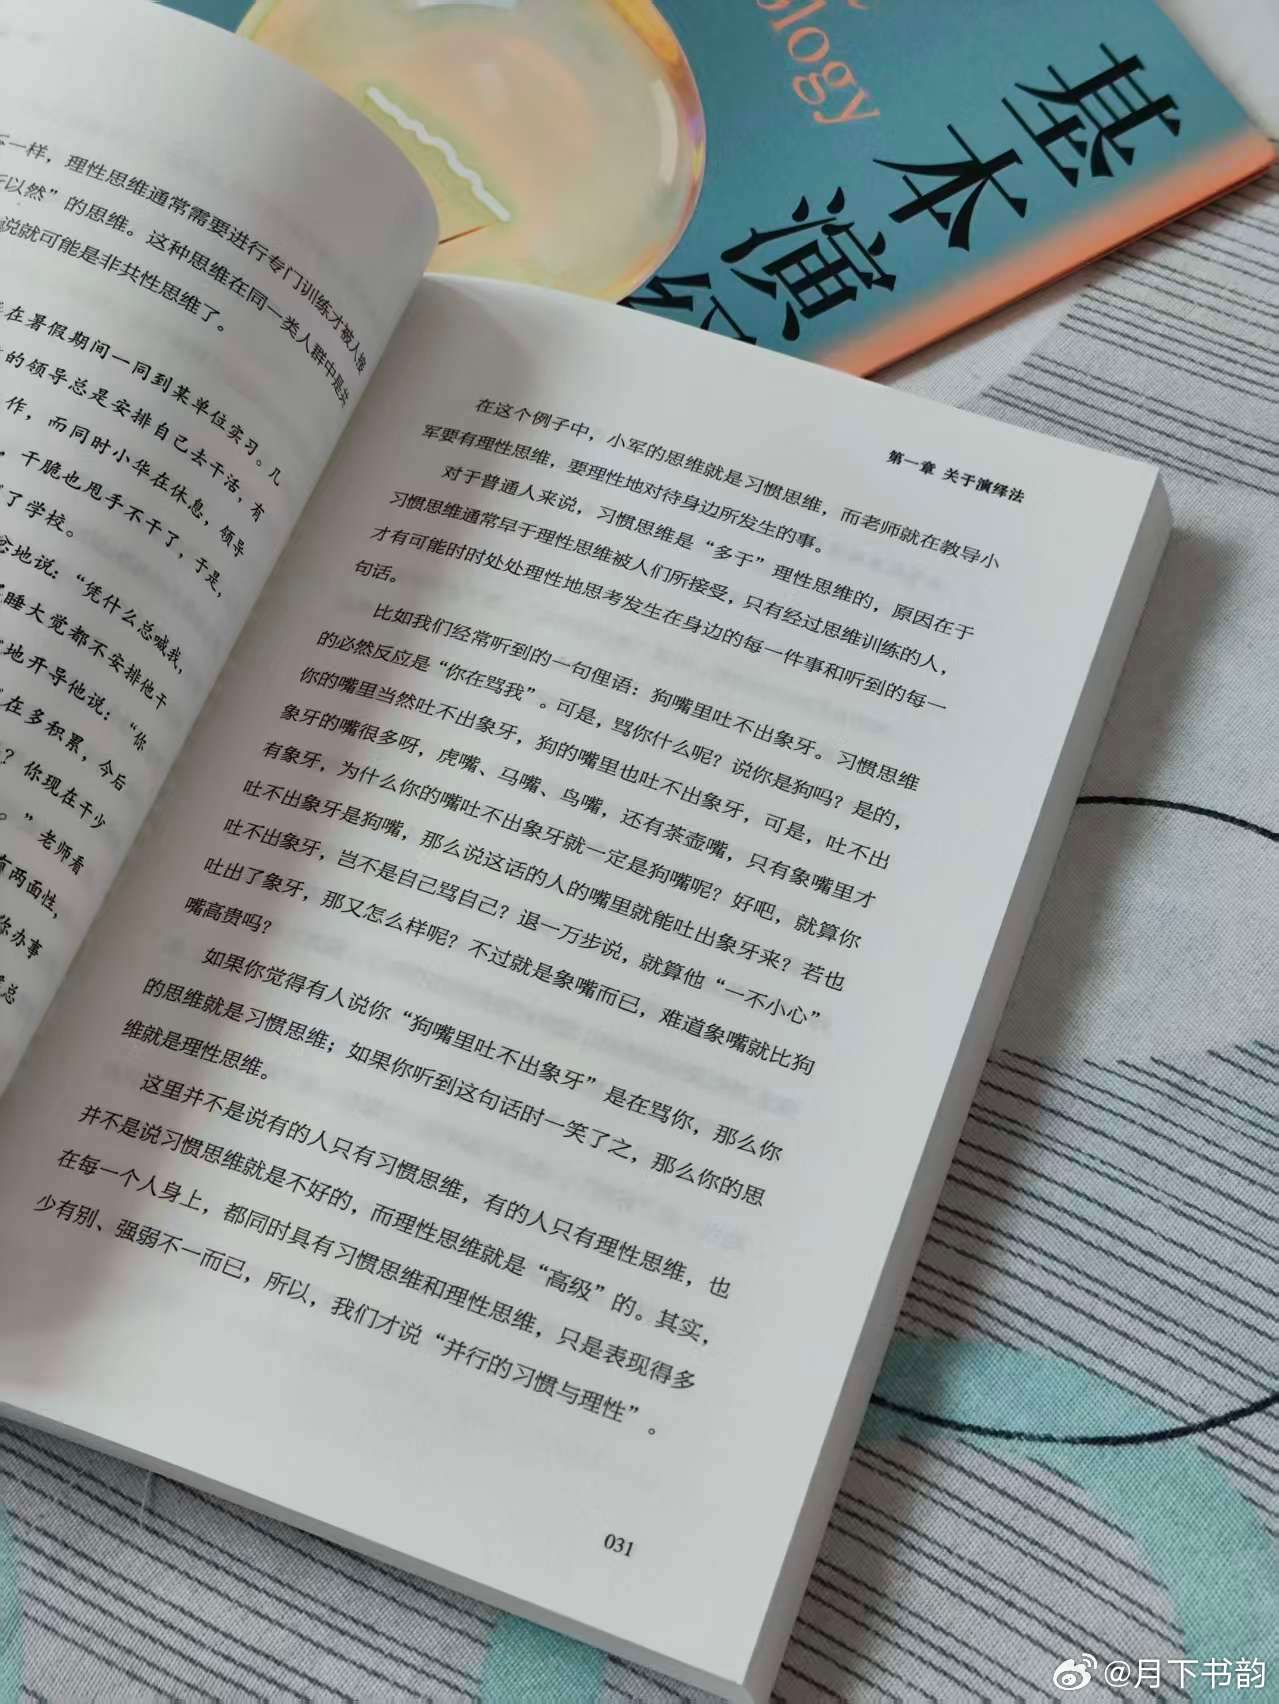 ology
基本演
不一样，理性思维通常需要进行专门训练才被人接
以然”的思维。这种思维在同一类人群中是共
说就可能是非共性思维了。
在暑假期间一同到某单位实习。几
的领导总是安排自己去干活，有
作，而同时小华在休息，领导
。干脆也甩手不干了，于是，
了学校。
地说：“凭什么总喊我，
睡大觉都不安排他干
地开导他说：“你
在多积累，今后
？你现在干少
。”老师看
有两面性，
你办事
总
第一章 关于演绎法
在这个例子中，小军的思维就是习惯思维，而老师就在教导小
军要有理性思维，要理性地对待身边所发生的事。
对于普通人来说，习惯思维是“多于”理性思维的，原因在于
习惯思维通常早于理性思维被人们所接受，只有经过思维训练的人，
才有可能时时处处理性地思考发生在身边的每一件事和听到的每一
句话。
比如我们经常听到的一句俚语：狗嘴里吐不出象牙。习惯思维
的必然反应是“你在骂我”。可是，骂你什么呢？说你是狗吗？是的，
你的嘴里当然吐不出象牙，狗的嘴里也吐不出象牙，可是，吐不出
象牙的嘴很多呀，虎嘴、马嘴、鸟嘴，还有茶壶嘴，只有象嘴里才
有象牙，为什么你的嘴吐不出象牙就一定是狗嘴呢？好吧，就算你
吐不出象牙是狗嘴，那么说这话的人的嘴里就能吐出象牙来？若也
吐不出象牙，岂不是自己骂自己？退一万步说，就算他“一不小心”
吐出了象牙，那又怎么样呢？不过就是象嘴而已，难道象嘴就比狗
嘴高贵吗？
如果你觉得有人说你“狗嘴里吐不出象牙”是在骂你，那么你
的思维就是习惯思维；如果你听到这句话时一笑了之，那么你的思
维就是理性思维。
这里并不是说有的人只有习惯思维，有的人只有理性思维，也
并不是说习惯思维就是不好的，而理性思维就是“高级”的。其实，
在每一个人身上，都同时具有习惯思维和理性思维，只是表现得多
少有别、强弱不一而已，所以，我们才说“并行的习惯与理性”。
031
@月下书韵